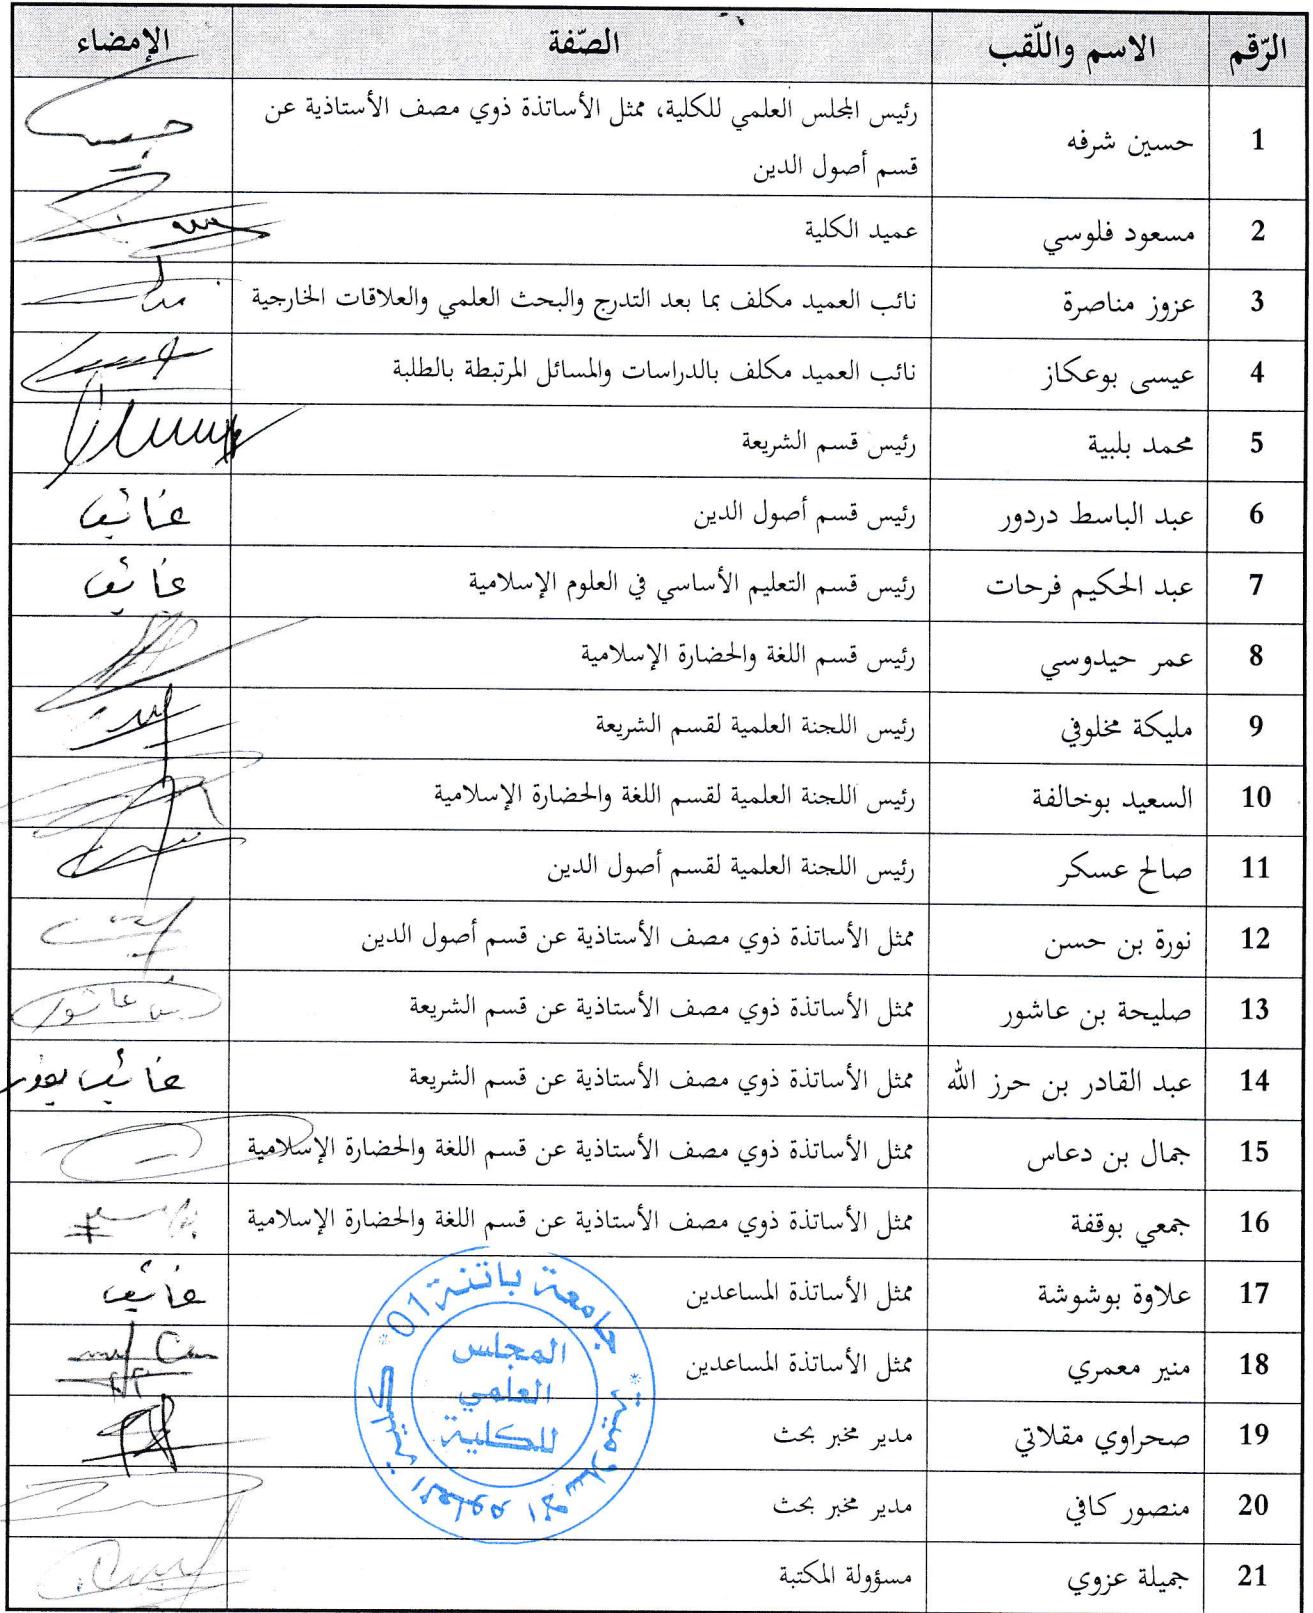 الرّقم الاسم واللّقب الصّفة الإمضاء
1 حسين شرفه رئيس المجلس العلمي للكلية، ممثل الأساتذة ذوي مصف الأستاذية عن
قسم أصول الدين
2 مسعود فلوسي عميد الكلية
3 عزوز مناصرة نائب العميد مكلف بما بعد التدرج والبحث العلمي والعلاقات الخارجية
4 عيسى بوعكاز نائب العميد مكلف بالدراسات والمسائل المرتبطة بالطلبة
5 محمد بلبية رئيس قسم الشريعة
6 عبد الباسط دردور رئيس قسم أصول الدين غائب
7 عبد الحكيم فرحات رئيس قسم التعليم الأساسي في العلوم الإسلامية غائب
8 عمر حيدوسي رئيس قسم اللغة والحضارة الإسلامية
9 مليكة مخلوفي رئيس اللجنة العلمية لقسم الشريعة
10 السعيد بوخالفة رئيس اللجنة العلمية لقسم اللغة والحضارة الإسلامية
11 صالح عسكر رئيس اللجنة العلمية لقسم أصول الدين
12 نورة بن حسن ممثل الأساتذة ذوي مصف الأستاذية عن قسم أصول الدين
13 صليحة بن عاشور ممثل الأساتذة ذوي مصف الأستاذية عن قسم الشريعة بن عاشور
14 عبد القادر بن حرز الله ممثل الأساتذة ذوي مصف الأستاذية عن قسم الشريعة غائب بعذر
15 جمال بن دعاس ممثل الأساتذة ذوي مصف الأستاذية عن قسم اللغة والحضارة الإسلامية
16 جمعي بوقفة ممثل الأساتذة ذوي مصف الأستاذية عن قسم اللغة والحضارة الإسلامية
17 علاوة بوشوشة ممثل الأساتذة المساعدين غائب
18 منير معمري ممثل الأساتذة المساعدين
19 صحراوي مقلاتي مدير مخبر بحث
20 منصور كافي مدير مخبر بحث
21 جميلة عزوي مسؤولة المكتبة
جامعة باتنة 01 * كلية العلوم الإسلامية *
المجلس
العلمي
للكلية